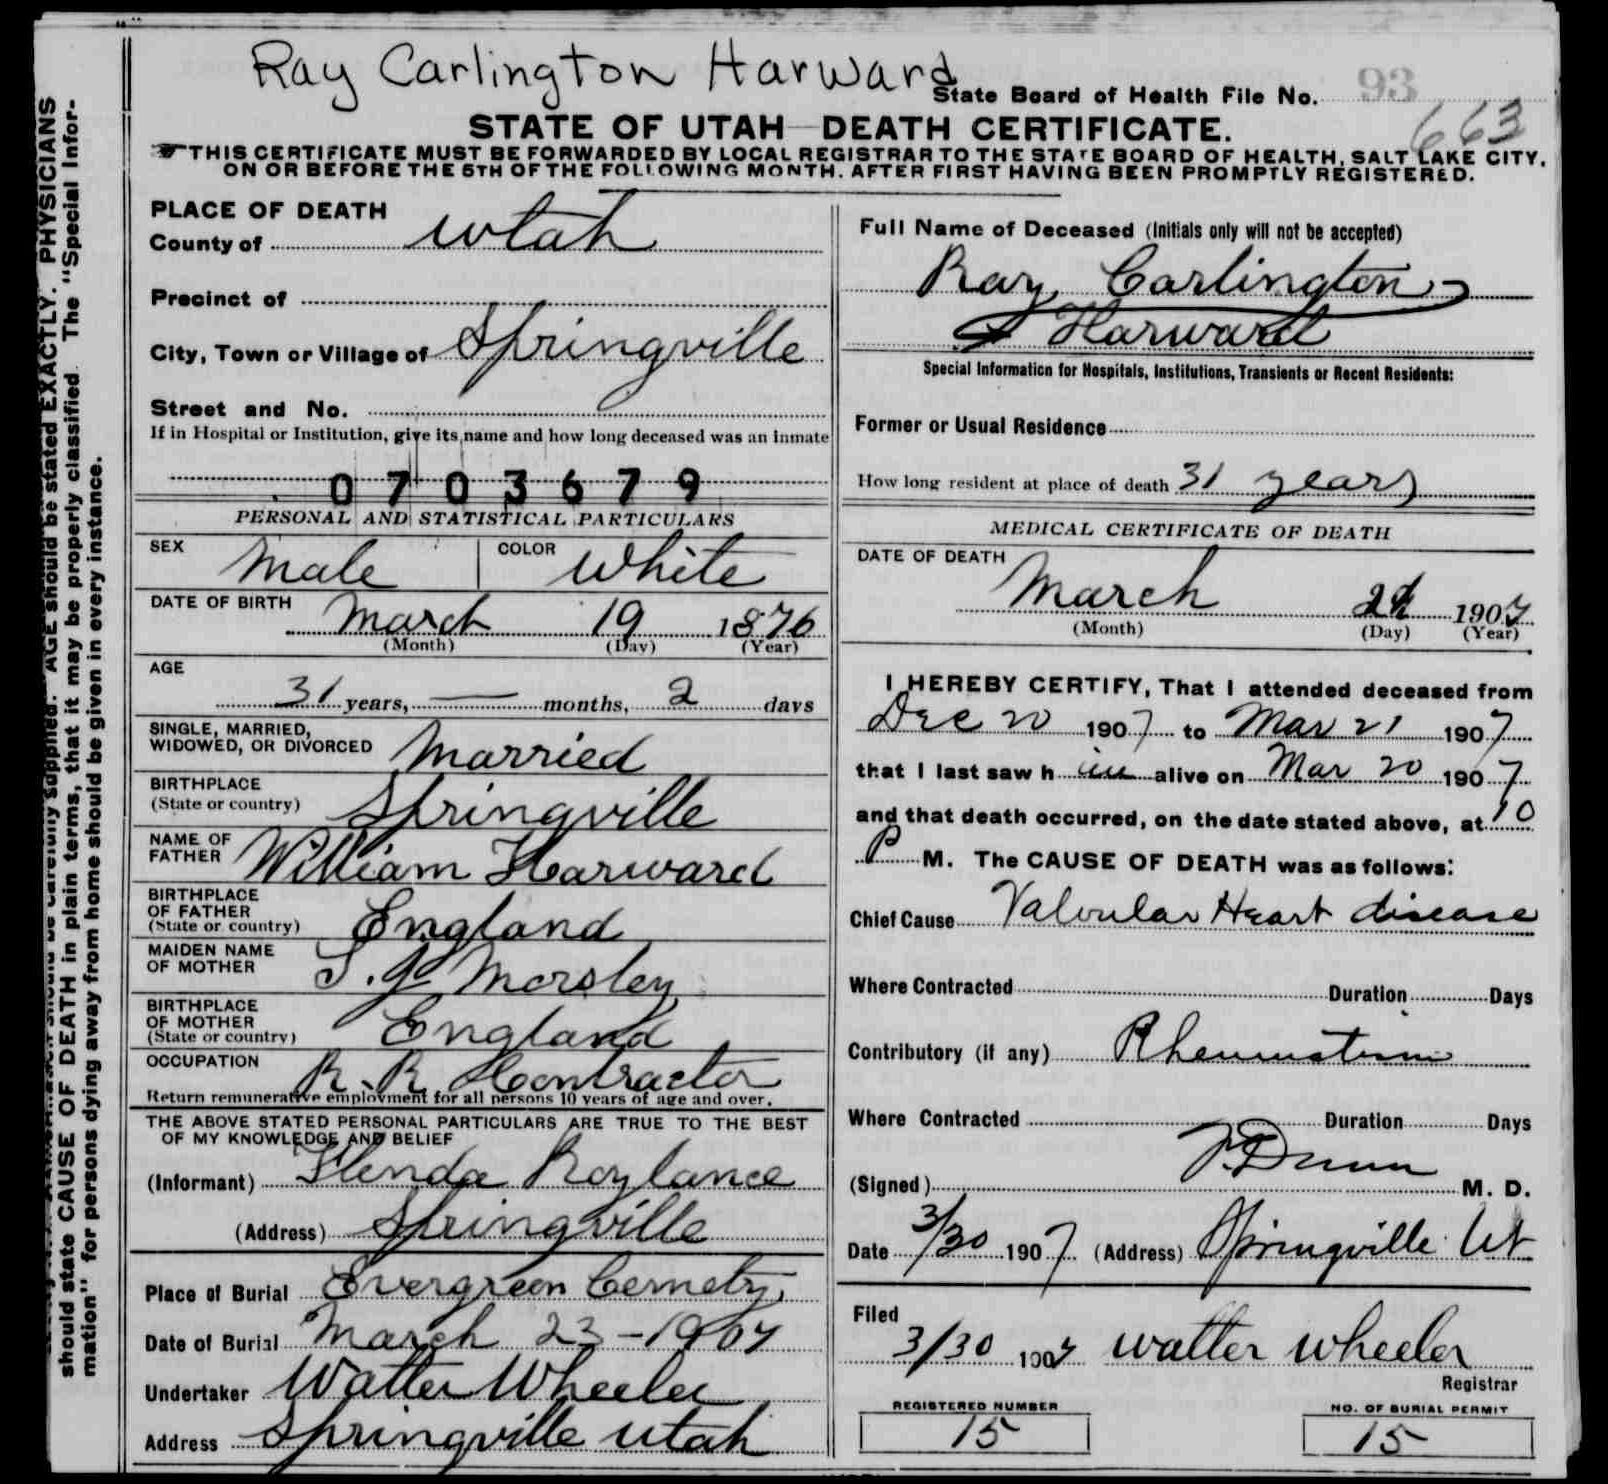 Ray Carlington Harward
State Board of Health File No. 93
663
STATE OF UTAH—DEATH CERTIFICATE.
THIS CERTIFICATE MUST BE FORWARDED BY LOCAL REGISTRAR TO THE STATE BOARD OF HEALTH, SALT LAKE CITY,
ON OR BEFORE THE 5TH OF THE FOLLOWING MONTH, AFTER FIRST HAVING BEEN PROMPTLY REGISTERED.
PLACE OF DEATH
County of Utah
Precinct of
City, Town or Village of Springville
Street and No.
If in Hospital or Institution, give its name and how long deceased was an inmate
0703679
PERSONAL AND STATISTICAL PARTICULARS
SEX Male COLOR White
DATE OF BIRTH March 19 1876
(Month) (Day) (Year)
AGE
31 years, — months, 2 days
SINGLE, MARRIED,
WIDOWED, OR DIVORCED Married
BIRTHPLACE
(State or country) Springville
NAME OF
FATHER William Harward
BIRTHPLACE
OF FATHER
(State or country) England
MAIDEN NAME
OF MOTHER Morsley
BIRTHPLACE
OF MOTHER
(State or country) England
OCCUPATION R.R. Contractor
Return remunerative employment for all persons 10 years of age and over.
THE ABOVE STATED PERSONAL PARTICULARS ARE TRUE TO THE BEST
OF MY KNOWLEDGE AND BELIEF
(Informant) Roylance
(Address) Springville
Place of Burial Evergreen Cemetry
Date of Burial March 23-1907
Undertaker Walter Wheeler
Address Springville Utah
Full Name of Deceased (Initials only will not be accepted)
Ray Carlington
Harward
Special Information for Hospitals, Institutions, Transients or Recent Residents:
Former or Usual Residence
How long resident at place of death 31 years
MEDICAL CERTIFICATE OF DEATH
DATE OF DEATH
March 1907
(Month) (Day) (Year)
I HEREBY CERTIFY, That I attended deceased from
Dec 20 1907 to Mar 21 1907
that I last saw h im alive on Mar 20 1907
and that death occurred, on the date stated above, at 10
P M. The CAUSE OF DEATH was as follows:
Chief Cause Valvular Heart disease
Where Contracted Duration Days
Contributory (if any) Rheumatism
Where Contracted Duration Days
(Signed) Dunn M. D.
Date 3/30 1907 (Address) Springville Ut
Filed
3/30 1907 Walter Wheeler
Registrar
REGISTERED NUMBER
15
NO. OF BURIAL PERMIT
15
AGE should be stated EXACTLY. PHYSICIANS
should state CAUSE OF DEATH in plain terms, that it may be properly classified. The "Special Infor-
mation" for persons dying away from home should be given in every instance.